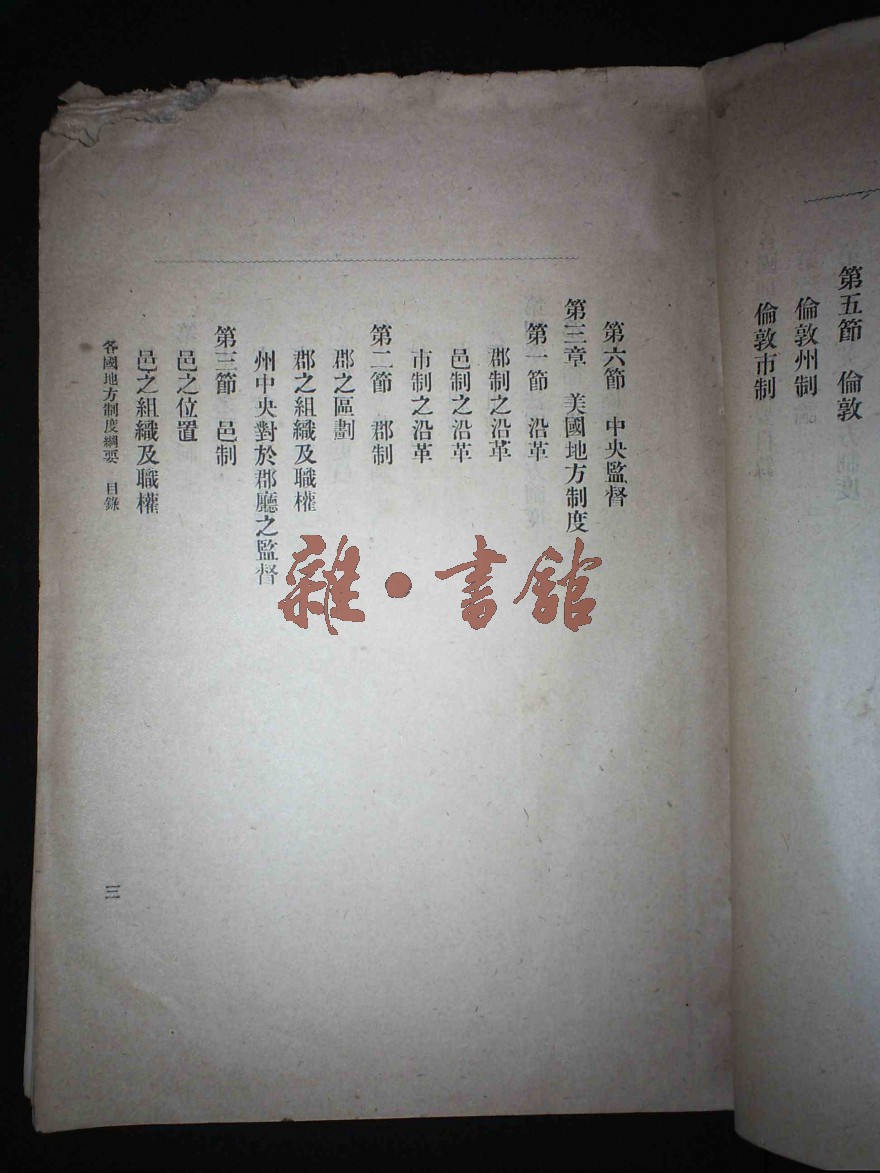 第五節　倫敦
倫敦州制
倫敦市制
第六節　中央監督
第三章　美國地方制度
第一節　沿革
郡制之沿革
邑制之沿革
市制之沿革
第二節　郡制
郡之區劃
郡之組織及職權
州中央對於郡廳之監督
第三節　邑制
邑之位置
邑之組織及職權
各國地方制度綱要　目錄
三
雜·書館